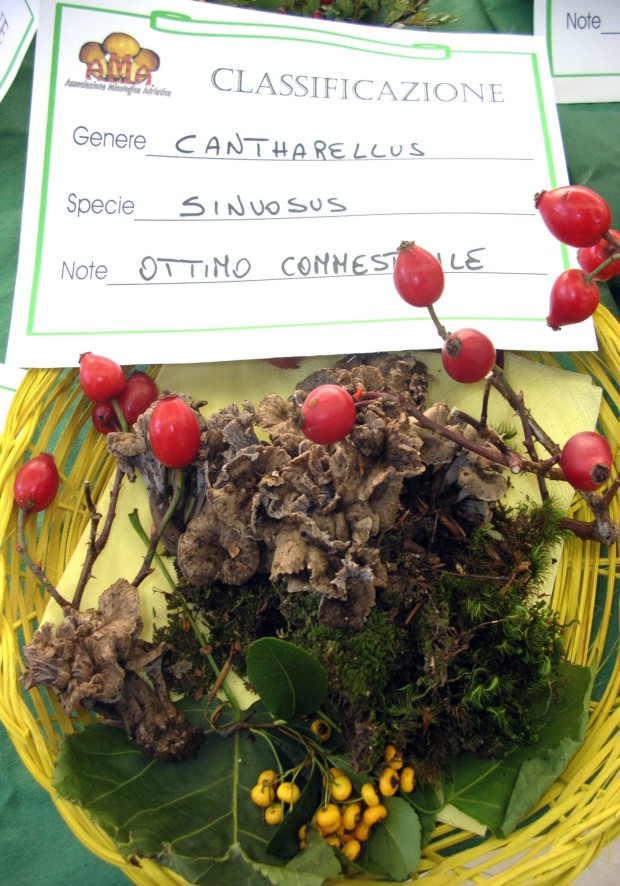 AMA
Associazione Micologica Adriatica
CLASSIFICAZIONE
Genere CANTHARELLUS
Specie SINUOSUS
Note OTTIMO COMMESTIBILE
Note